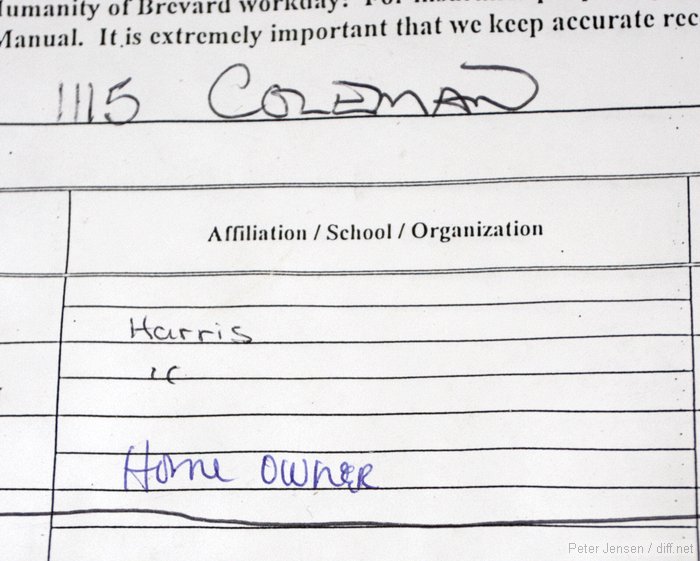 Humanity of Brevard workday.
Manual. It is extremely important that we keep accurate rec
1115 COLEMAN
Affiliation / School / Organization
Harris
"
Home OWNER
Peter Jensen / diff.net